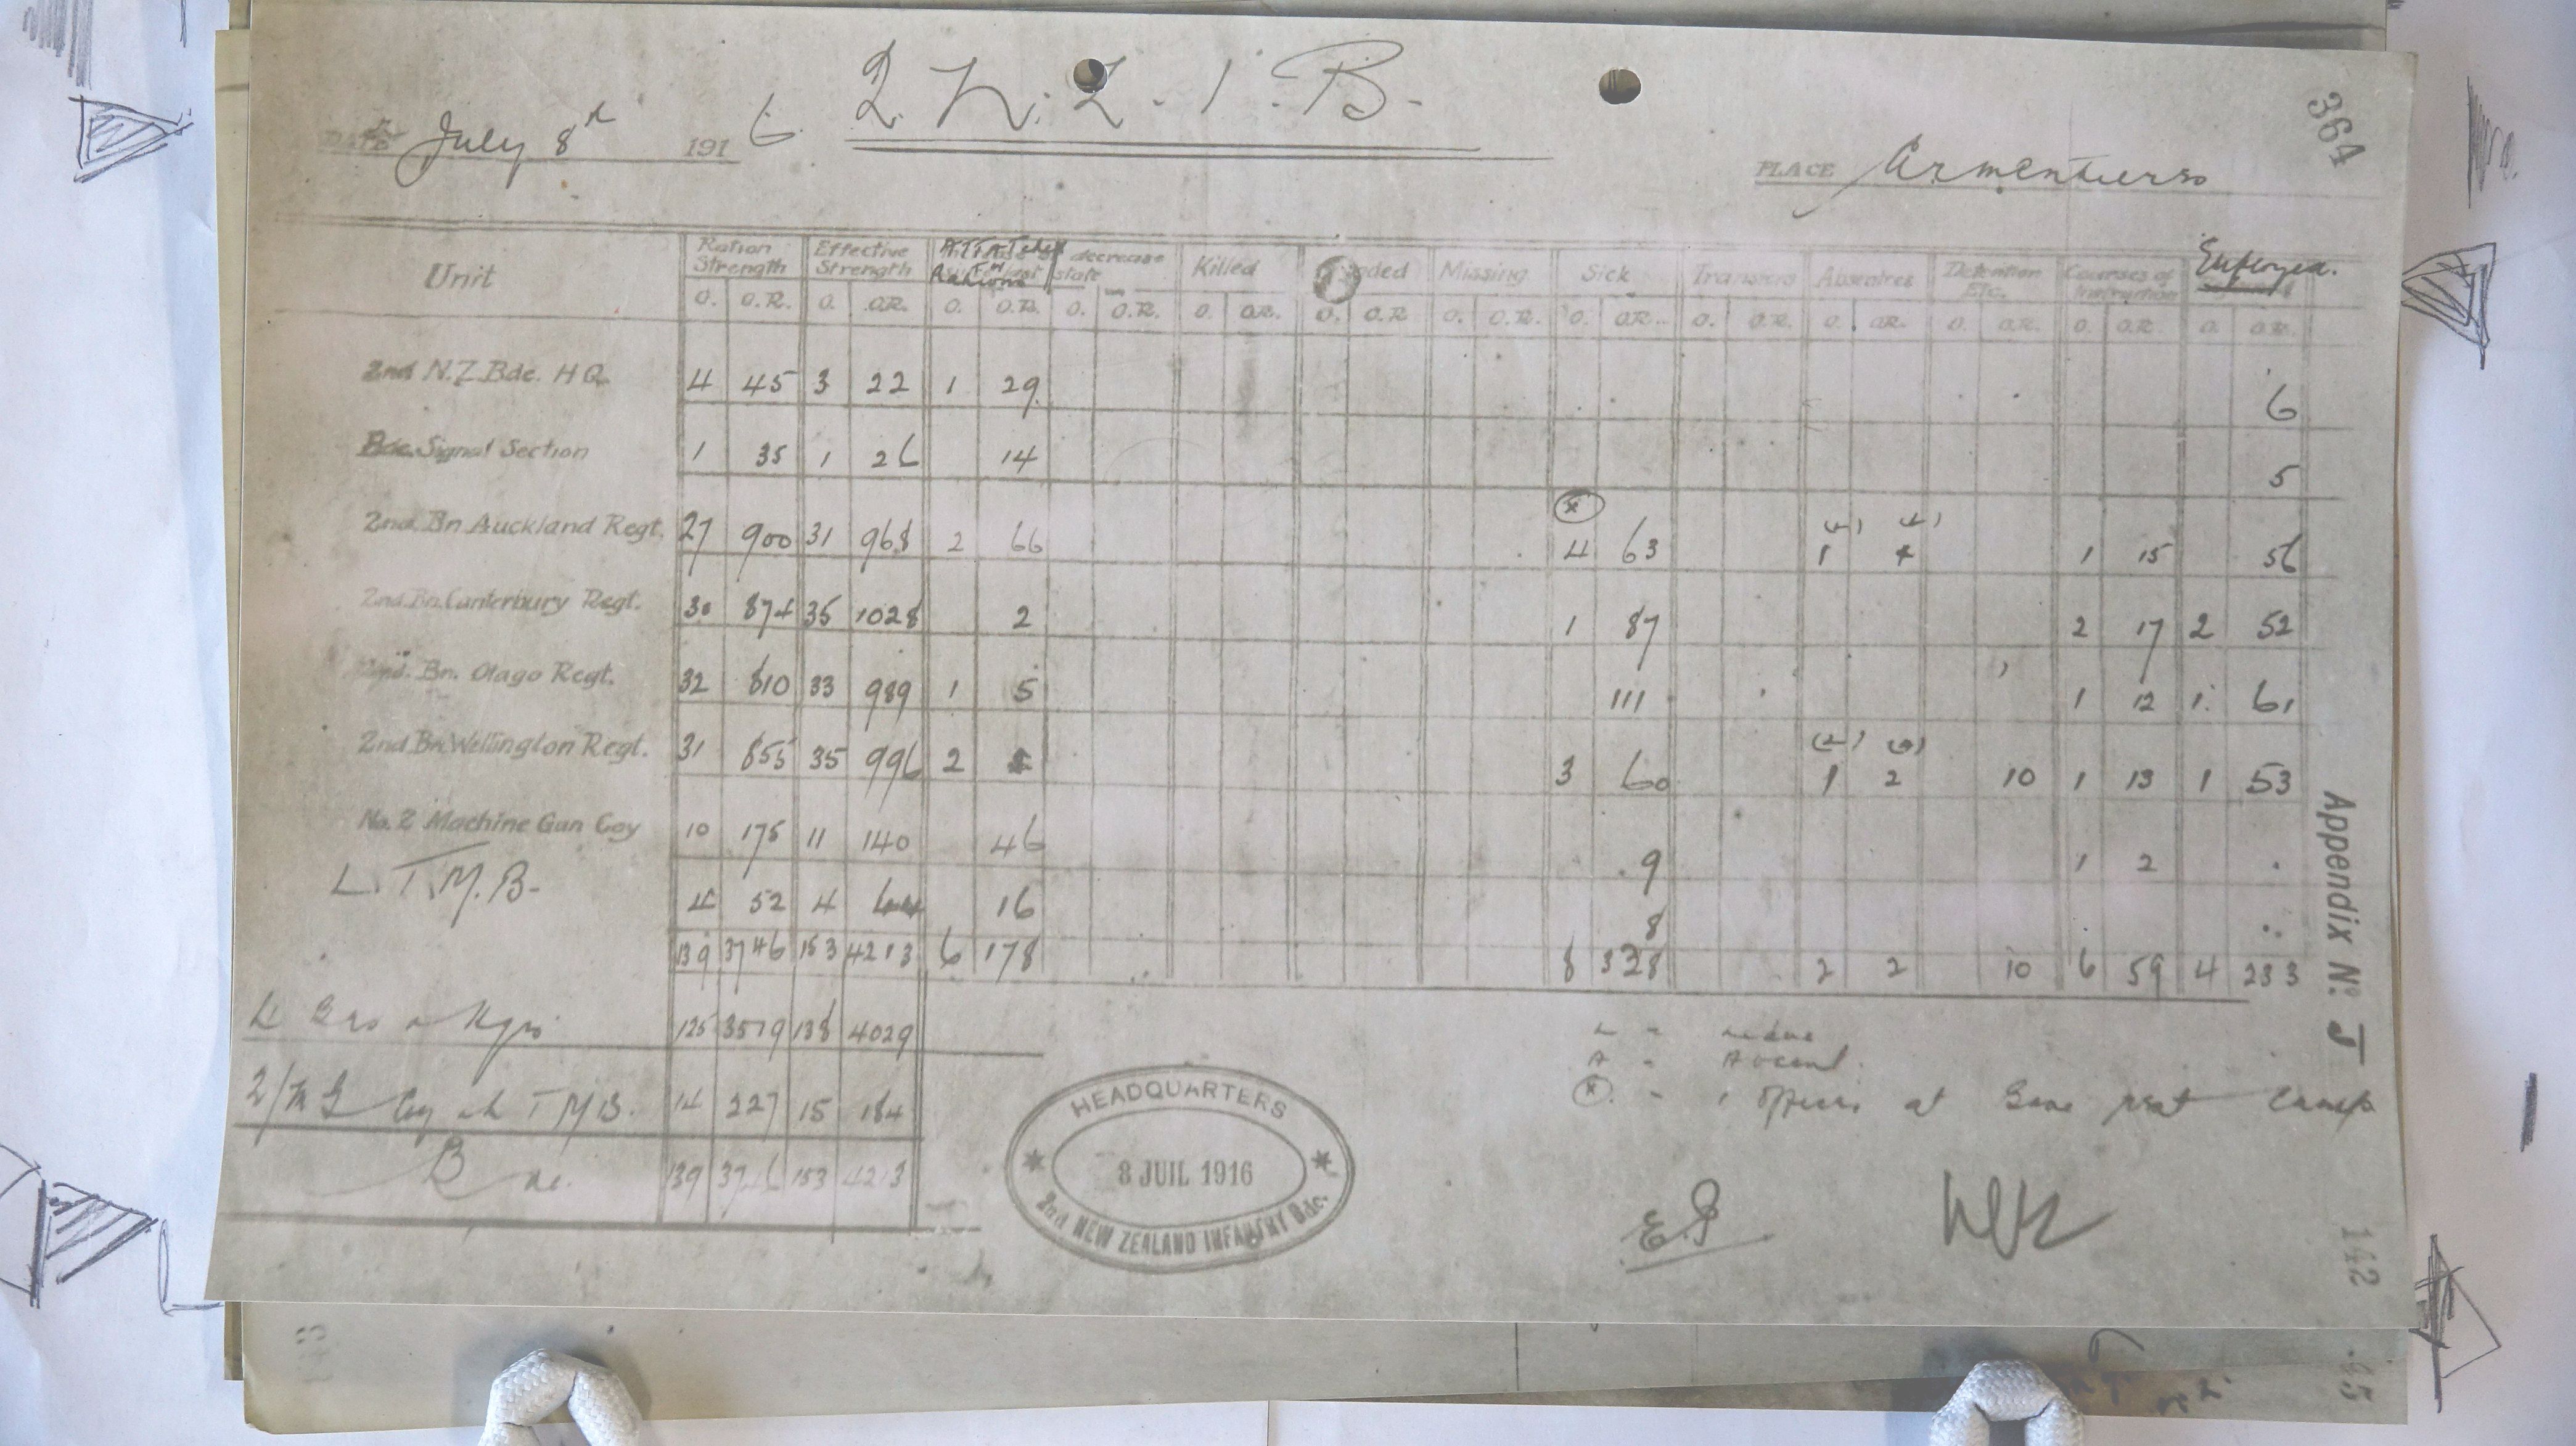 2. N. Z. I. B.
Date July 8th 1916.
PLACE Armentieres
364
Unit Ration Strength Effective Strength Attached for Rations decrease state Killed Missing Sick Transfers Absentees Detention Etc. Courses of Instruction Employed.
O. O.R. O. O.R. O. O.R. O. O.R. O. O.R. O. O.R. O. O.R. O. O.R. O. O.R. O. O.R. O. O.R. O. O.R. O. O.R.
2nd N.Z. Bde. H Q. 4 45 3 22 1 29 6
Bde. Signal Section 1 35 1 26 14 5
2nd. Bn Auckland Regt. 27 900 31 968 2 66 (*) 4 63 1 1 15 56
2nd. Bn. Canterbury Regt. 30 874 35 1028 2 1 87 2 17 2 52
2nd. Bn. Otago Regt. 32 810 33 989 1 5 111 1 12 1 61
2nd Bn. Wellington Regt. 31 855 35 996 2 3 60 1 2 10 1 13 1 53
No. 2 Machine Gun Coy 10 175 11 140 46 9 1 2
L. T. M. B. 4 52 4 44 16 8
139 3746 153 4213 6 178 8 328 2 2 10 6 59 4 233
4 Bns & Hqrs 125 3519 138 4029
2/M G Coy & L T M B. 14 227 15 184
Bde. 139 3746 153 4213
A - Absent.
(*) - 1 Officer at Bone rest Camp
HEADQUARTERS
8 JUIL 1916
2nd NEW ZEALAND INFANTRY Bde.
Appendix No. J
142
45